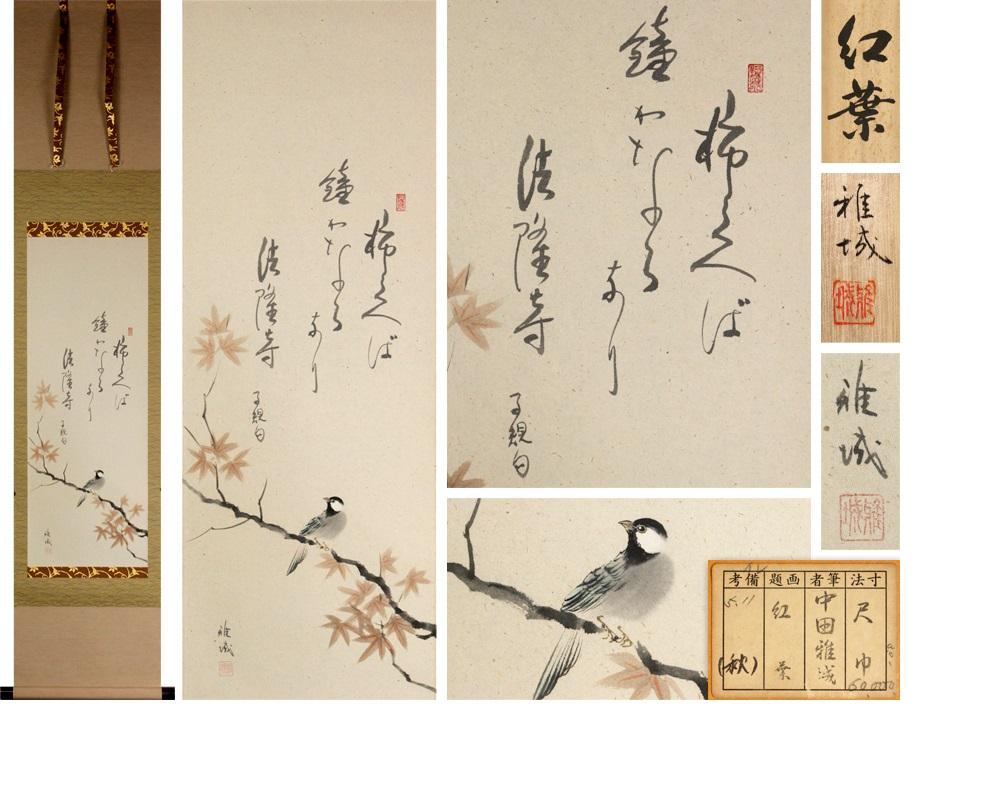 柿くへば
鐘がなる
なり
法隆寺
子規句
雅城
紅葉
雅城
雅城
雅城
雅城
寸法
筆者
画題
備考
尺巾
中田雅城
紅葉
(秋)